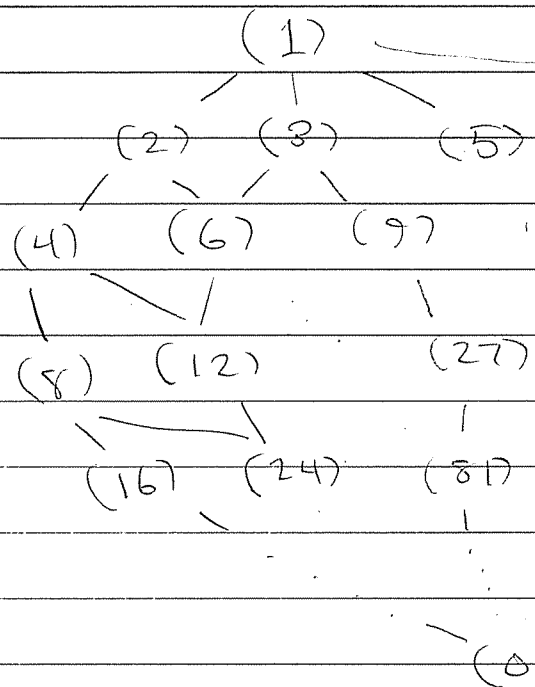 (1)
(2) (3) (5)
(4) (6) (9)
(8) (12) (27)
(16) (24) (81)
(0